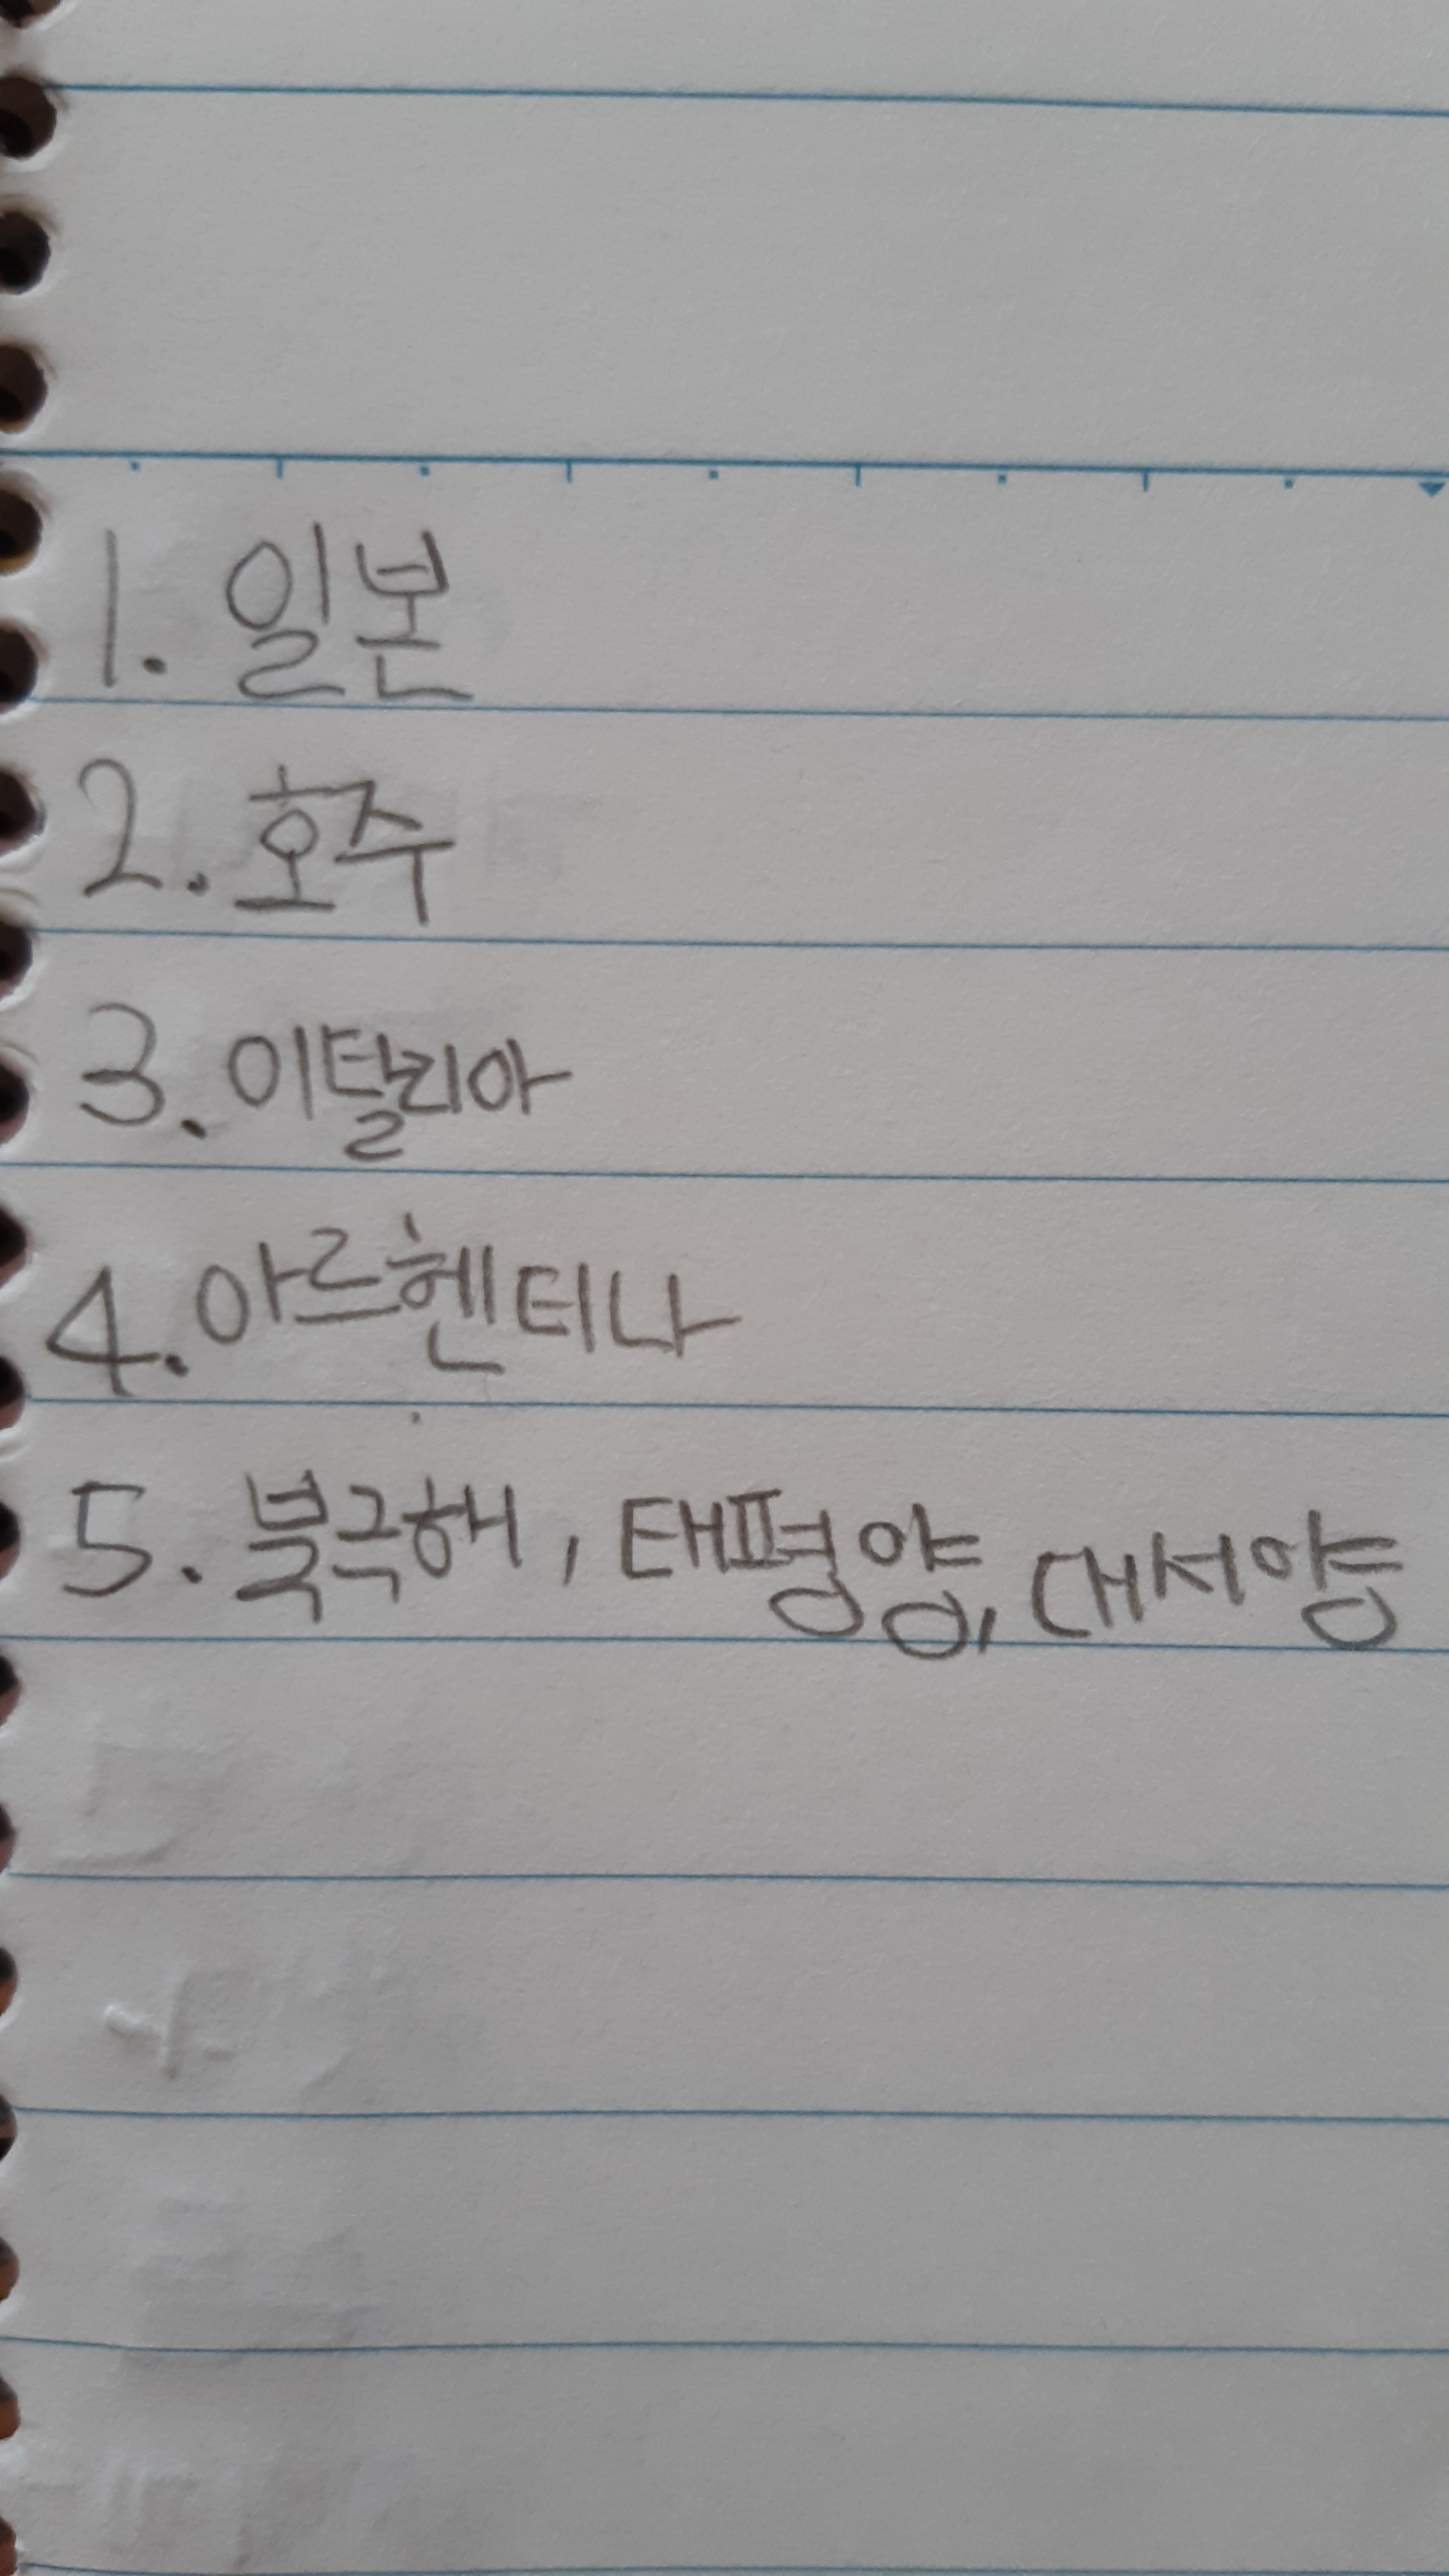 1. 일본
2. 호주
3. 이탈리아
4. 아르헨티나
5. 북극해, 태평양, 대서양